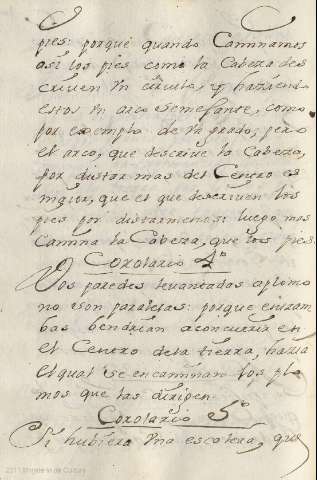 pies: porque quando Caminamos
asi los pies como la Cabeza des
criven Vn circulo, y haziendo
estos Vn arco semejante, como
por exemplo de Vn grado; pero
el arco, que descrive la Cabeza,
por distar mas del Centro es
mayor, que el que descriven los
pies por distar menos: luego mas
Camina la Cabeza, que los pies.
Corolario 4º
Dos paredes levantadas aplomo
no son paralelas: porque entram
bas bendrian a concurrir en
el Centro de la tierra, hazia
el qual se encaminan los plo
mos que las dirigen.
Corolario 5º
Si hubiera Vna escalera, que
2011 Ministerio de Cultura